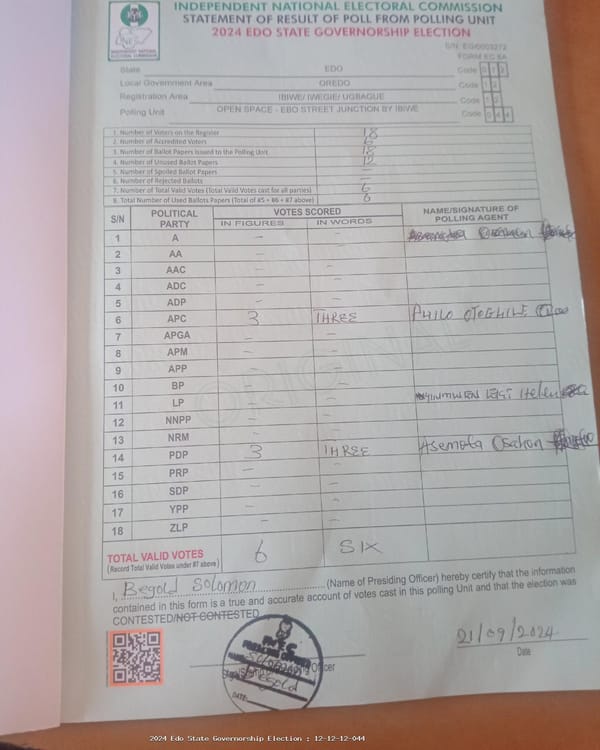 INDEPENDENT NATIONAL ELECTORAL COMMISSION
STATEMENT OF RESULT OF POLL FROM POLLING UNIT
2024 EDO STATE GOVERNORSHIP ELECTION
S/N: EG/0003272
FORM EC 8A
State EDO Code 0 1 2
Local Government Area OREDO Code 1 2
Registration Area IBIWE/ IWEGIE/ UGBAGUE Code 1 2
Polling Unit OPEN SPACE - EBO STREET JUNCTION BY IBIWE Code 0 4 4
1. Number of Voters on the Register 18
2. Number of Accredited Voters 6
3. Number of Ballot Papers Issued to the Polling Unit 18
4. Number of Unused Ballot Papers 12
5. Number of Spoiled Ballot Papers —
6. Number of Rejected Ballots —
7. Number of Total Valid Votes (Total Valid Votes cast for all parties) 6
8. Total Number of Used Ballots Papers (Total of #5 + #6 + #7 above) 6
S/N POLITICAL PARTY VOTES SCORED NAME/SIGNATURE OF POLLING AGENT
IN FIGURES IN WORDS
1 A — —
2 AA — —
3 AAC — —
4 ADC — —
5 ADP — —
6 APC 3 THREE PHILO OTOGHILE
7 APGA — —
8 APM — —
9 APP — —
10 BP — —
11 LP — — Helen
12 NNPP — —
13 NRM — —
14 PDP 3 THREE Asemota Osahon
15 PRP — —
16 SDP — —
17 YPP — —
18 ZLP — —
TOTAL VALID VOTES 6 SIX
(Record Total Valid Votes under #7 above)
I, Begold Solomon (Name of Presiding Officer) hereby certify that the information
contained in this form is a true and accurate account of votes cast in this polling Unit and that the election was
CONTESTED/NOT CONTESTED
21/09/2024
Date
Officer
DATE:
ORIGINAL
2024 Edo State Governorship Election : 12-12-12-044